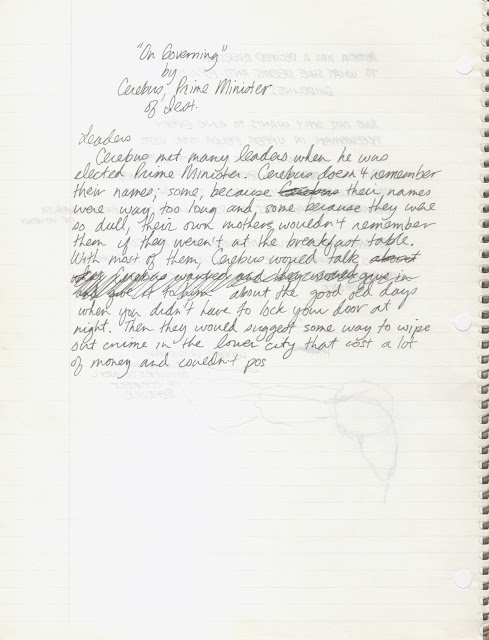 "On Governing"
by
Cerebus, Prime Minister
of Iest.
Leaders
Cerebus met many leaders when he was
elected Prime Minister. Cerebus doesn't remember
their names; some, because Cerebus their names
were way too long and, some because they were
so dull, their own mothers wouldn't remember
them if they weren't at the breakfast table.
With most of them, Cerebus would talk about
what Cerebus wanted and they would give in
and give it to him about the good old days
when you didn't have to lock your door at
night. Then they would suggest some way to wipe
out crime in the lower city that cost a lot
of money and couldn't pos